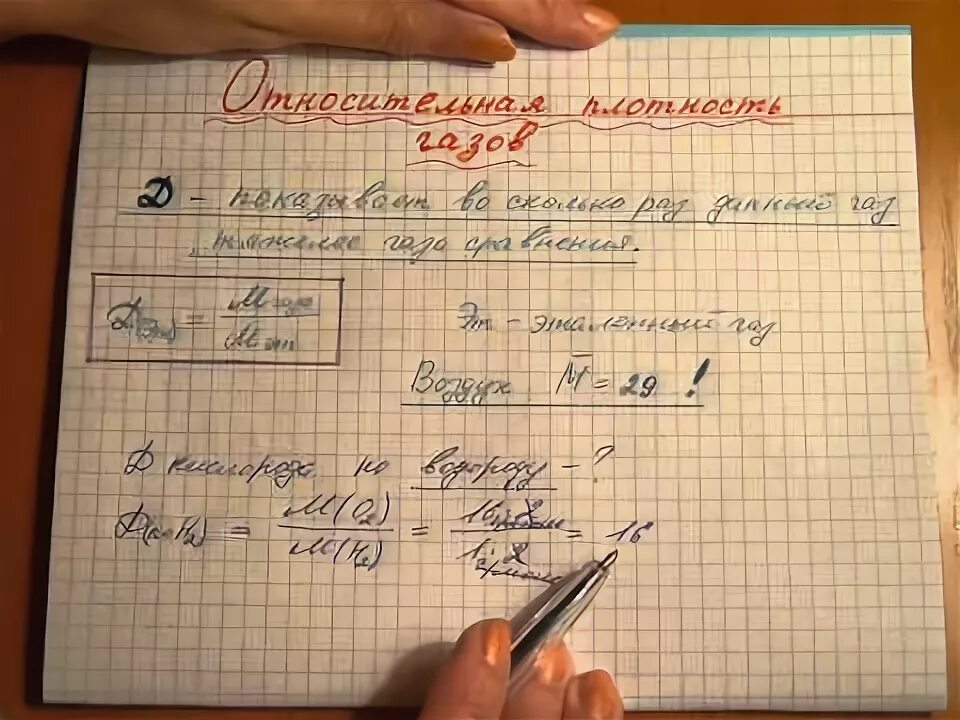 Относительная плотность
газов
D - показывает во сколько раз данный газ
тяжелее газа сравнения.
D(эт) = M газа / M эт
Эт - эталонный газ
Воздух M̅ = 29 !
D кислорода по водороду - ?
D(по H₂) = M(O₂) / M(H₂) = 16·2 г/моль / 1·2 г/моль = 16